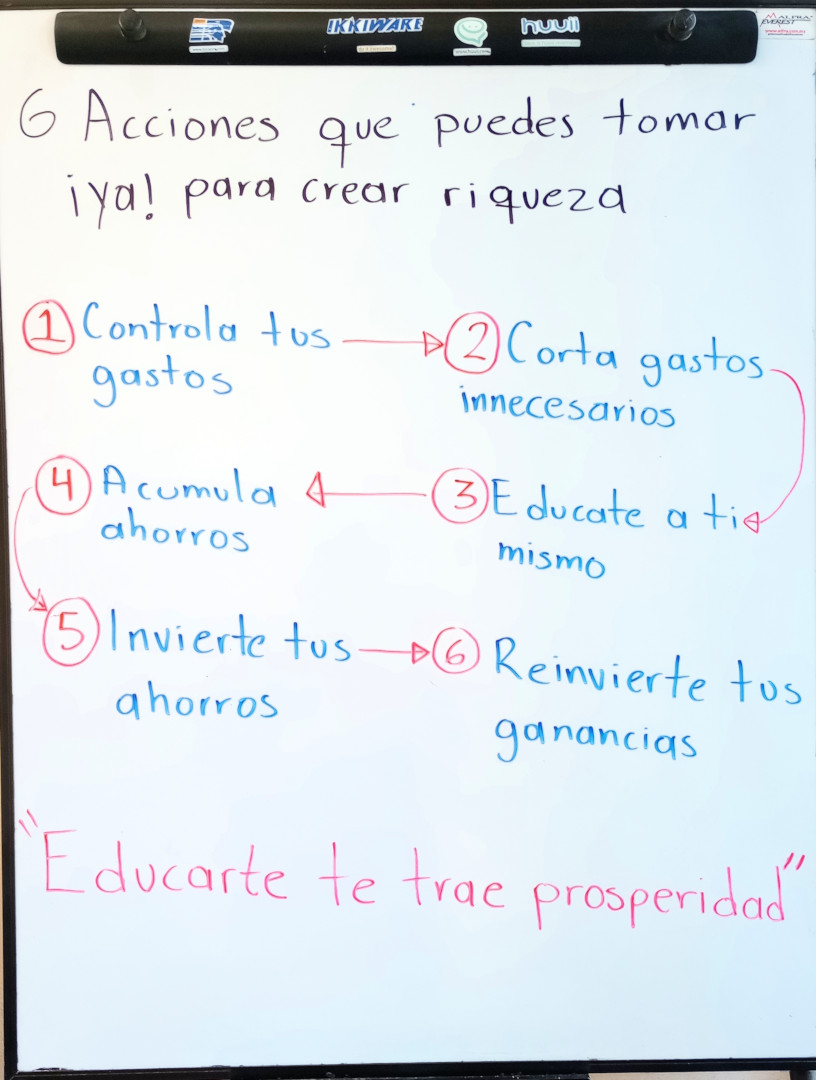 IKKIWARE
huuii
ALFRA
EVEREST
6 Acciones que puedes tomar
¡ya! para crear riqueza
1 Controla tus
gastos
2 Corta gastos
innecesarios
3 Educate a ti
mismo
4 Acumula
ahorros
5 Invierte tus
ahorros
6 Reinvierte tus
ganancias
"Educarte te trae prosperidad"